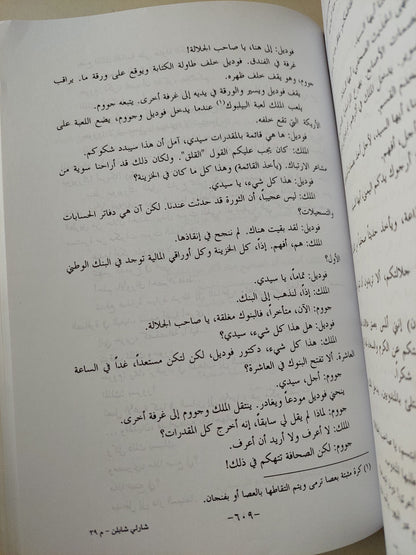 فوديل: إلى هنا، يا صاحب الجلالة!
غرفة في الفندق. فوديل خلف طاولة الكتابة ويوقع على ورقة ما. يراقب
جووم، وهو يقف خلف ظهره.
يقف فوديل ويسير والورقة في يديه إلى غرفة أخرى. يتبعه جووم.
يلعب الملك لعبة البيلبوك(١) عندما يدخل فوديل وجووم، يضع اللعبة على
الأريكة التي تقع خلفه.
فوديل: ها هي قائمة بالمقدرات سيدي، آمل أن هذا سيبدد شكوككم.
الملك: كان يجب عليكم القول "القلق". ولكان ذلك قد أراحنا سوية من
مشاعر الارتباك. (يأخذ القائمة) وهذا كل ما كان في الخزينة؟
فوديل: هذا كل شيء، يا سيدي.
الملك: ليس عجيباً، أن الثورة قد حدثت عندنا. لكن أن هي دفاتر الحسابات
والتسجيلات؟
فوديل: لقد بقيت هناك. لم ننجح في إنقاذها.
الملك: هم، أفهم. إذاً، كل الخزينة وكل أوراقي المالية توجد في البنك الوطني
الأول؟
فوديل: تماماً، يا سيدي.
الملك: إذاً، لنذهب إلى البنك.
جووم: الآن، متأخراً، فالبنوك مغلقة، يا صاحب الجلالة.
فوديل: هل هذا كل شيء، سيدي؟
الملك: هذا كل شيء، دكتور فوديل، لكن لنكن مستعداً، غداً في الساعة
العاشرة. ألا تفتح البنوك في العاشرة؟
جووم: أجل، سيدي.
ينحني فوديل مودعاً ويغادر. ينتقل الملك وجووم إلى غرفة أخرى.
جووم: لماذا لم يقل لي سابقاً، إنه أخرج كل المقدرات؟
الملك: لا أعرف ولا أريد أن أعرف.
جووم: لكن الصحافة تتهمكم في ذلك!
(١) كرة مثبتة بعصا ترمى ويتم التقاطها بالعصا أو بفنجان.
-٦٠٩-
شارلي شابلن - م ٣٩